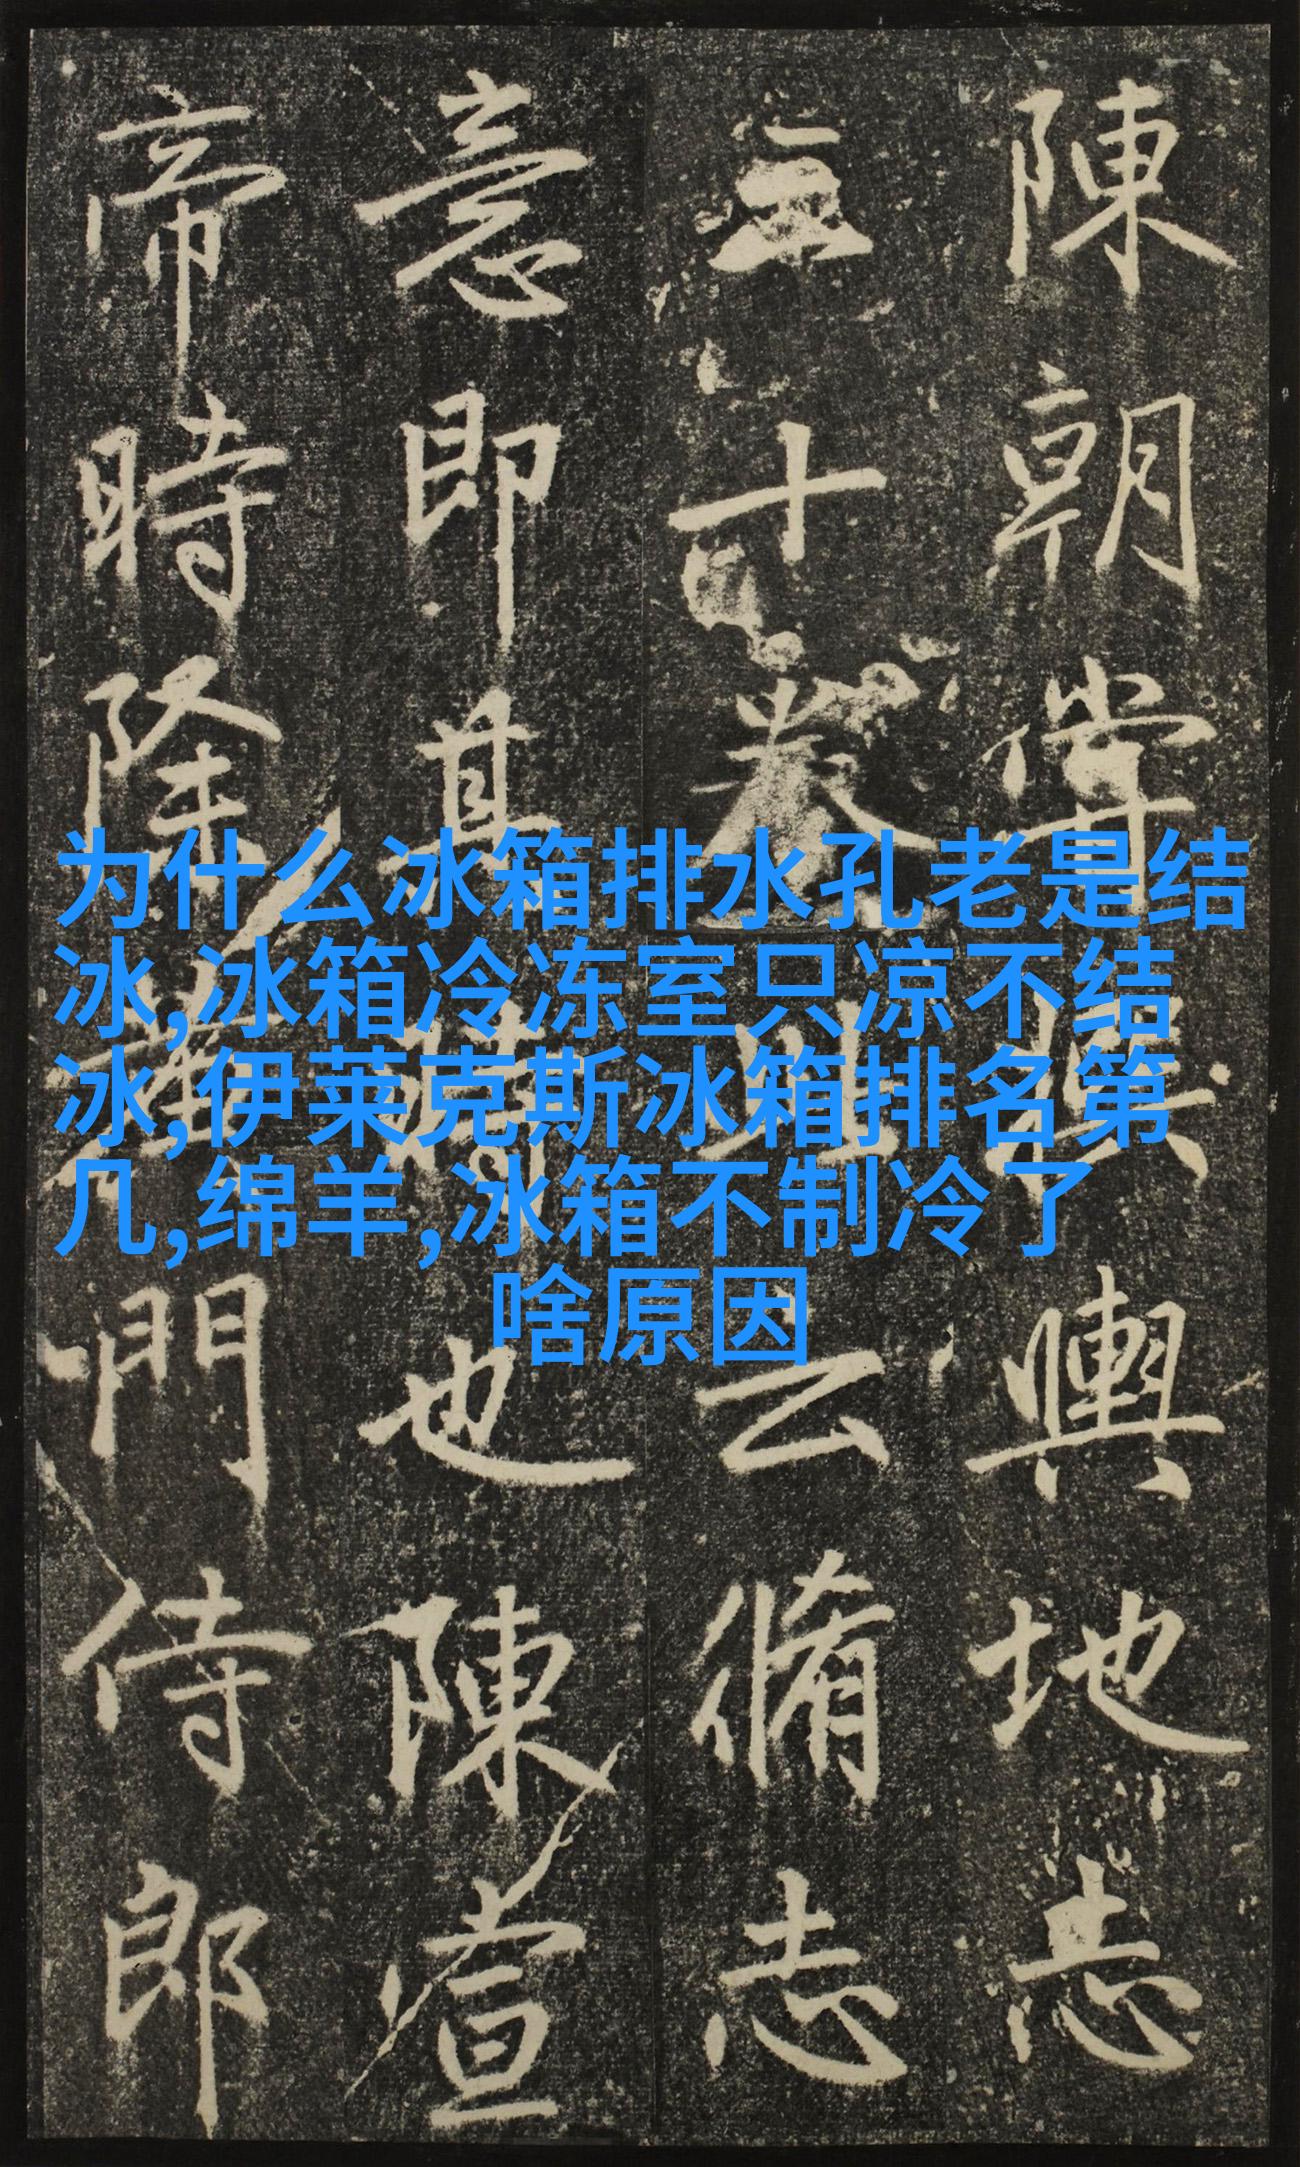 陳朝嘗撰輿地志
三十卷云脩志
意即其時也陳宣
帝時除黃門侍郎
为什么冰箱排水孔老是结
冰,冰箱冷冻室只凉不结
冰,伊莱克斯冰箱排名第
几,绵羊,冰箱不制冷了
啥原因